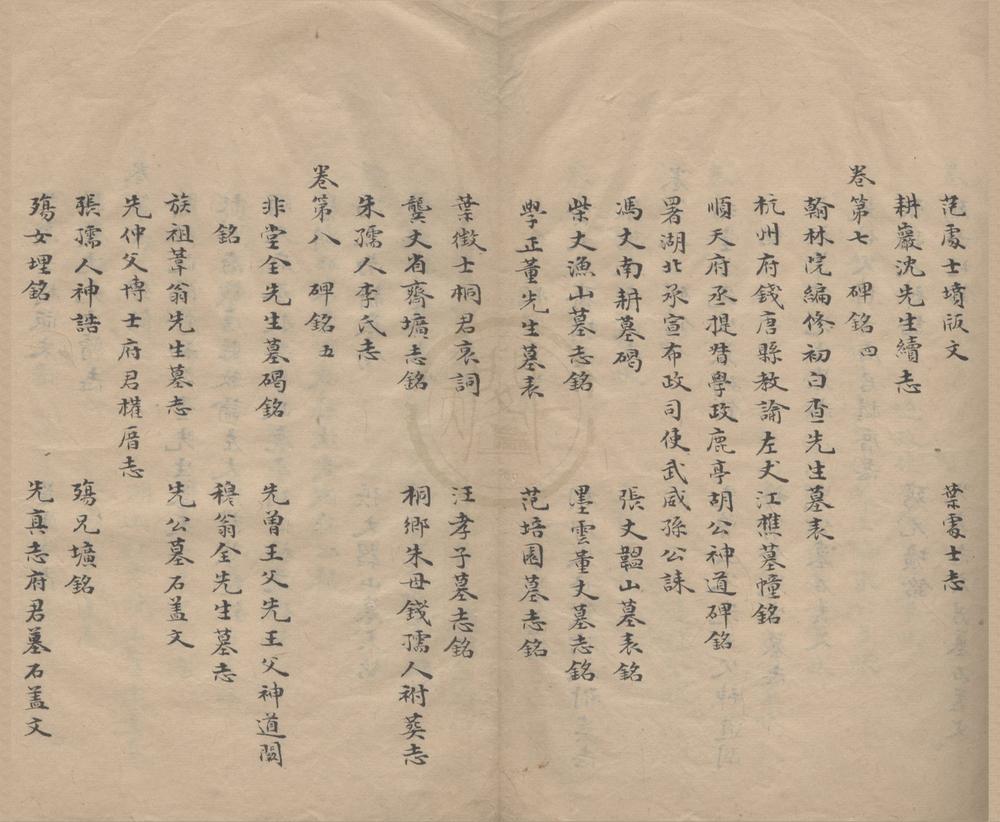 范處士墳版文　葉處士志
耕巖沈先生續志
卷第七　碑銘四
翰林院編修初白查先生墓表
杭州府錢唐縣教諭左丈江樵墓幢銘
順天府丞提督學政鹿亭胡公神道碑銘
署湖北承宣布政司使武威孫公誄
馮丈南耕墓碣　張丈韞山墓表銘
柴丈漁山墓志銘　墨雲董丈墓志銘
學正董先生墓表　范培園墓志銘
葉徵士桐君哀詞　汪孝子墓志銘
龔丈省齋壙志銘　桐鄉朱母錢孺人祔葬志
朱孺人李氏志
卷第八　碑銘五
非堂全先生墓碣銘　先曾王父先王父神道闕
銘　穆翁全先生墓志
族祖葦翁先生墓志　先公墓石蓋文
先仲父博士府君權厝志
張孺人神誥　殤兄壙銘
殤女埋銘　先真志府君墓石蓋文